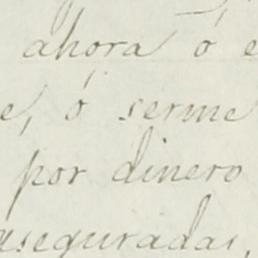 ahora ó e
e, ó serme
por dinero
aseguradas,